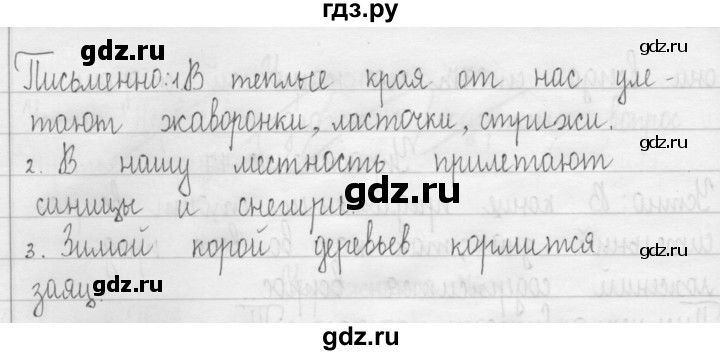 гдз.ру
Письменно: 1. В теплые края от нас уле-
gdz.ru gdz.ru
тают жаворонки, ласточки, стрижи.
2. В нашу местность прилетают
gdz.ru
синицы и снегири.
3. Зимой корой деревьев кормится
gdz.ru gdz.ru
заяц.
gdz.ru